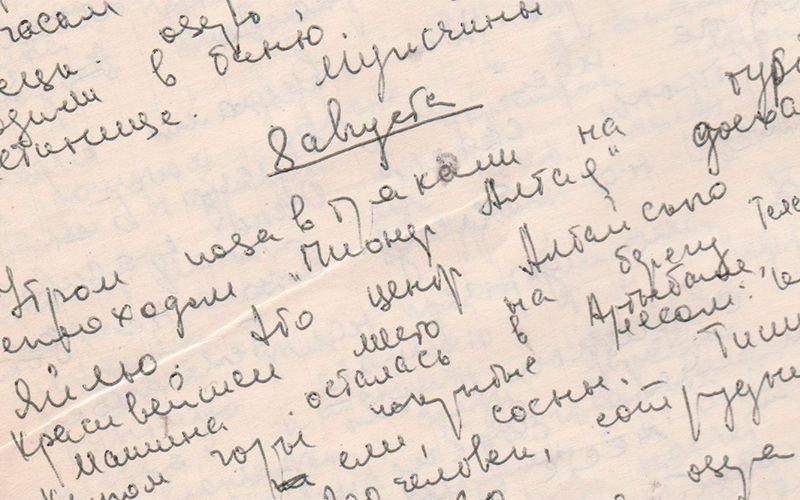 часам озеро
ходили в баню. Мужчины
гостинице.
8 августа
Утром позавтракали на турб
теплоходом "Пионер Алтая" доеха
Яйлю. Это центр Алтайского
Красивейшее место на берегу Теле
Машина осталась в Артыбаше,
Кругом горы покрытые лесом.
ели, сосны. Тиши
человек, сотрудни
озера